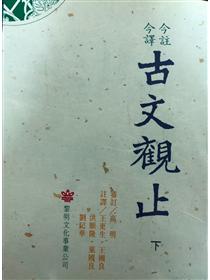 今註
今譯
古文觀止
下
審訂/高明
註譯/王更生·王國良
洪順隆·葉國良
劉紀華
黎明文化事業公司